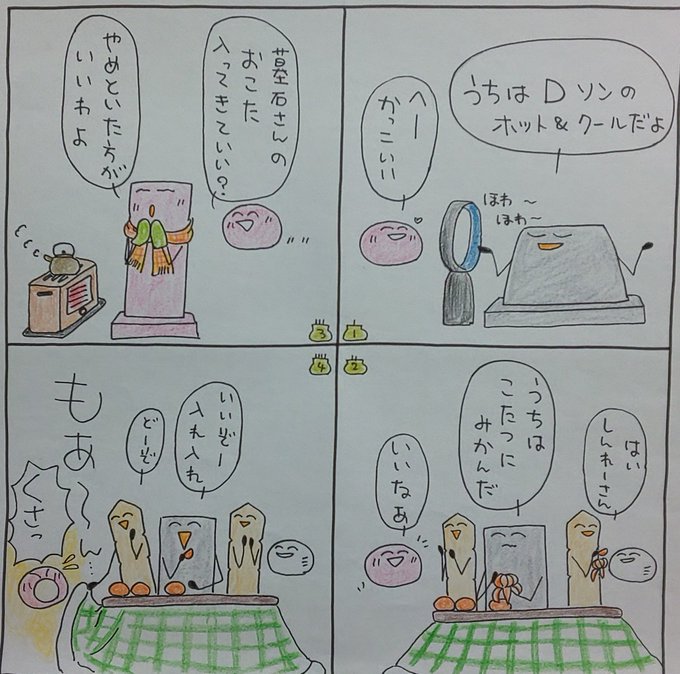 うちは Dソンの
ホット&クールだよ
へー
かっこいい
ほわ~
ほわ~
1
はい
しんれーさん
うちは
こたつに
みかんだ
いいなぁ
2
墓石さんの
おこた
入ってきていい?
やめといた方が
いいわよ
3
いいぞー
入れ入れ
どーぞ
もあ~~…
くさっ
4